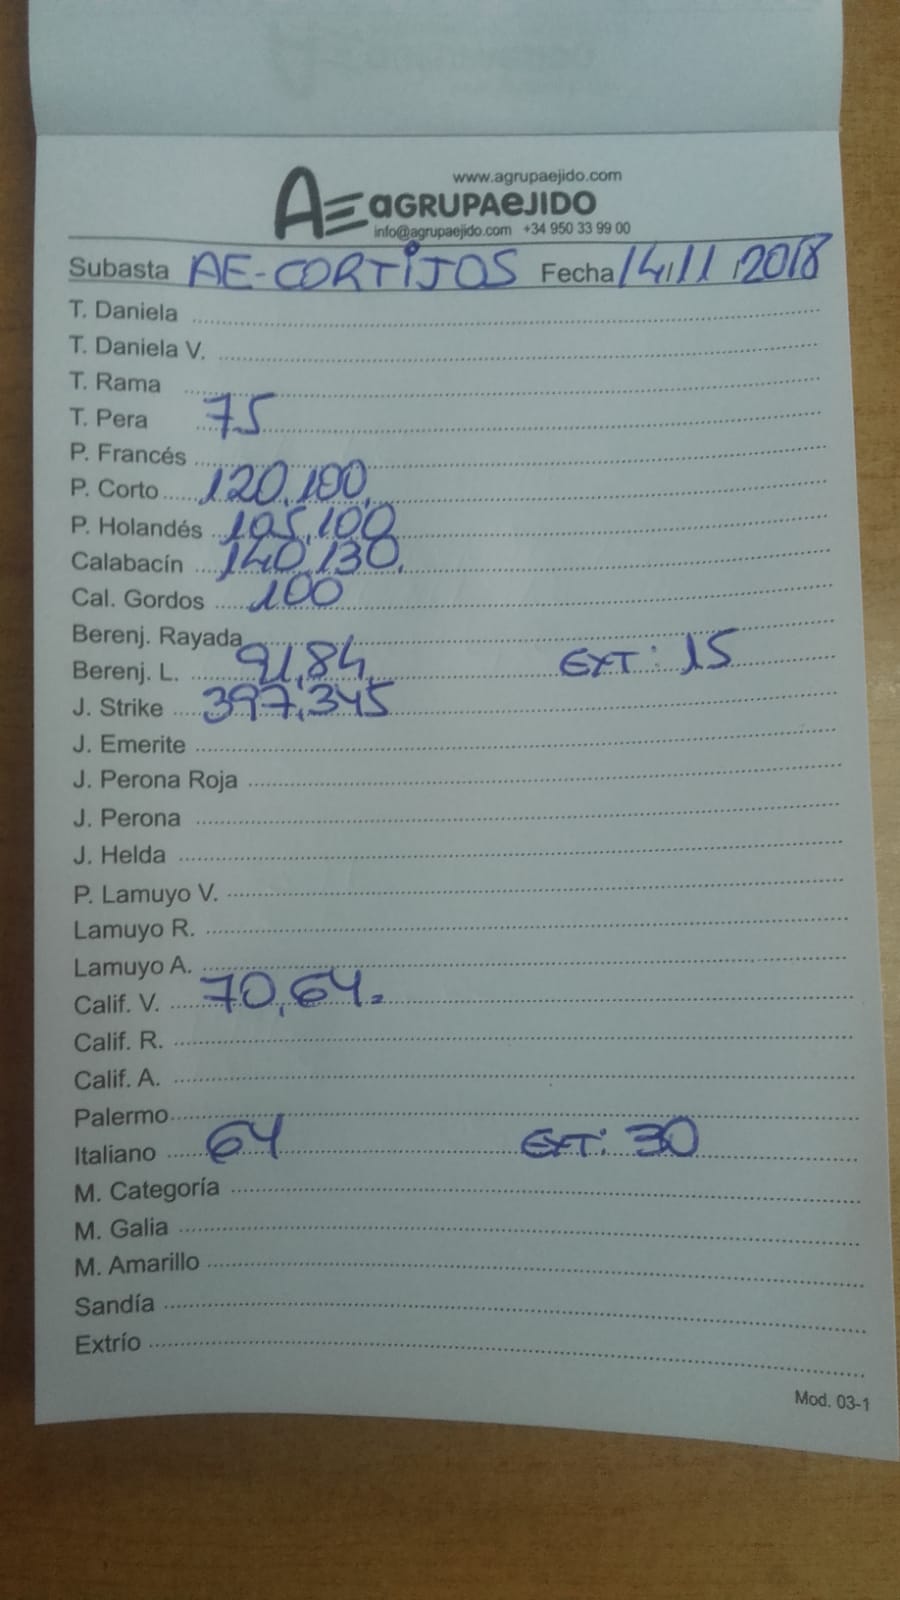 www.agrupaejido.com
AE aGRUPAeJIDO
info@agrupaejido.com +34 950 33 99 00
Subasta AE-CORTIJOS Fecha 14/11/2018
T. Daniela
T. Daniela V.
T. Rama
T. Pera 75
P. Francés
P. Corto 120,100,
P. Holandés 105,100
Calabacín 140,130,
Cal. Gordos 100
Berenj. Rayada
Berenj. L. 91,84, EXT: 15
J. Strike 397,345
J. Emerite
J. Perona Roja
J. Perona
J. Helda
P. Lamuyo V.
Lamuyo R.
Lamuyo A.
Calif. V. 70,64.
Calif. R.
Calif. A.
Palermo
Italiano 64 EXT: 30
M. Categoría
M. Galia
M. Amarillo
Sandía
Extrío
Mod. 03-1